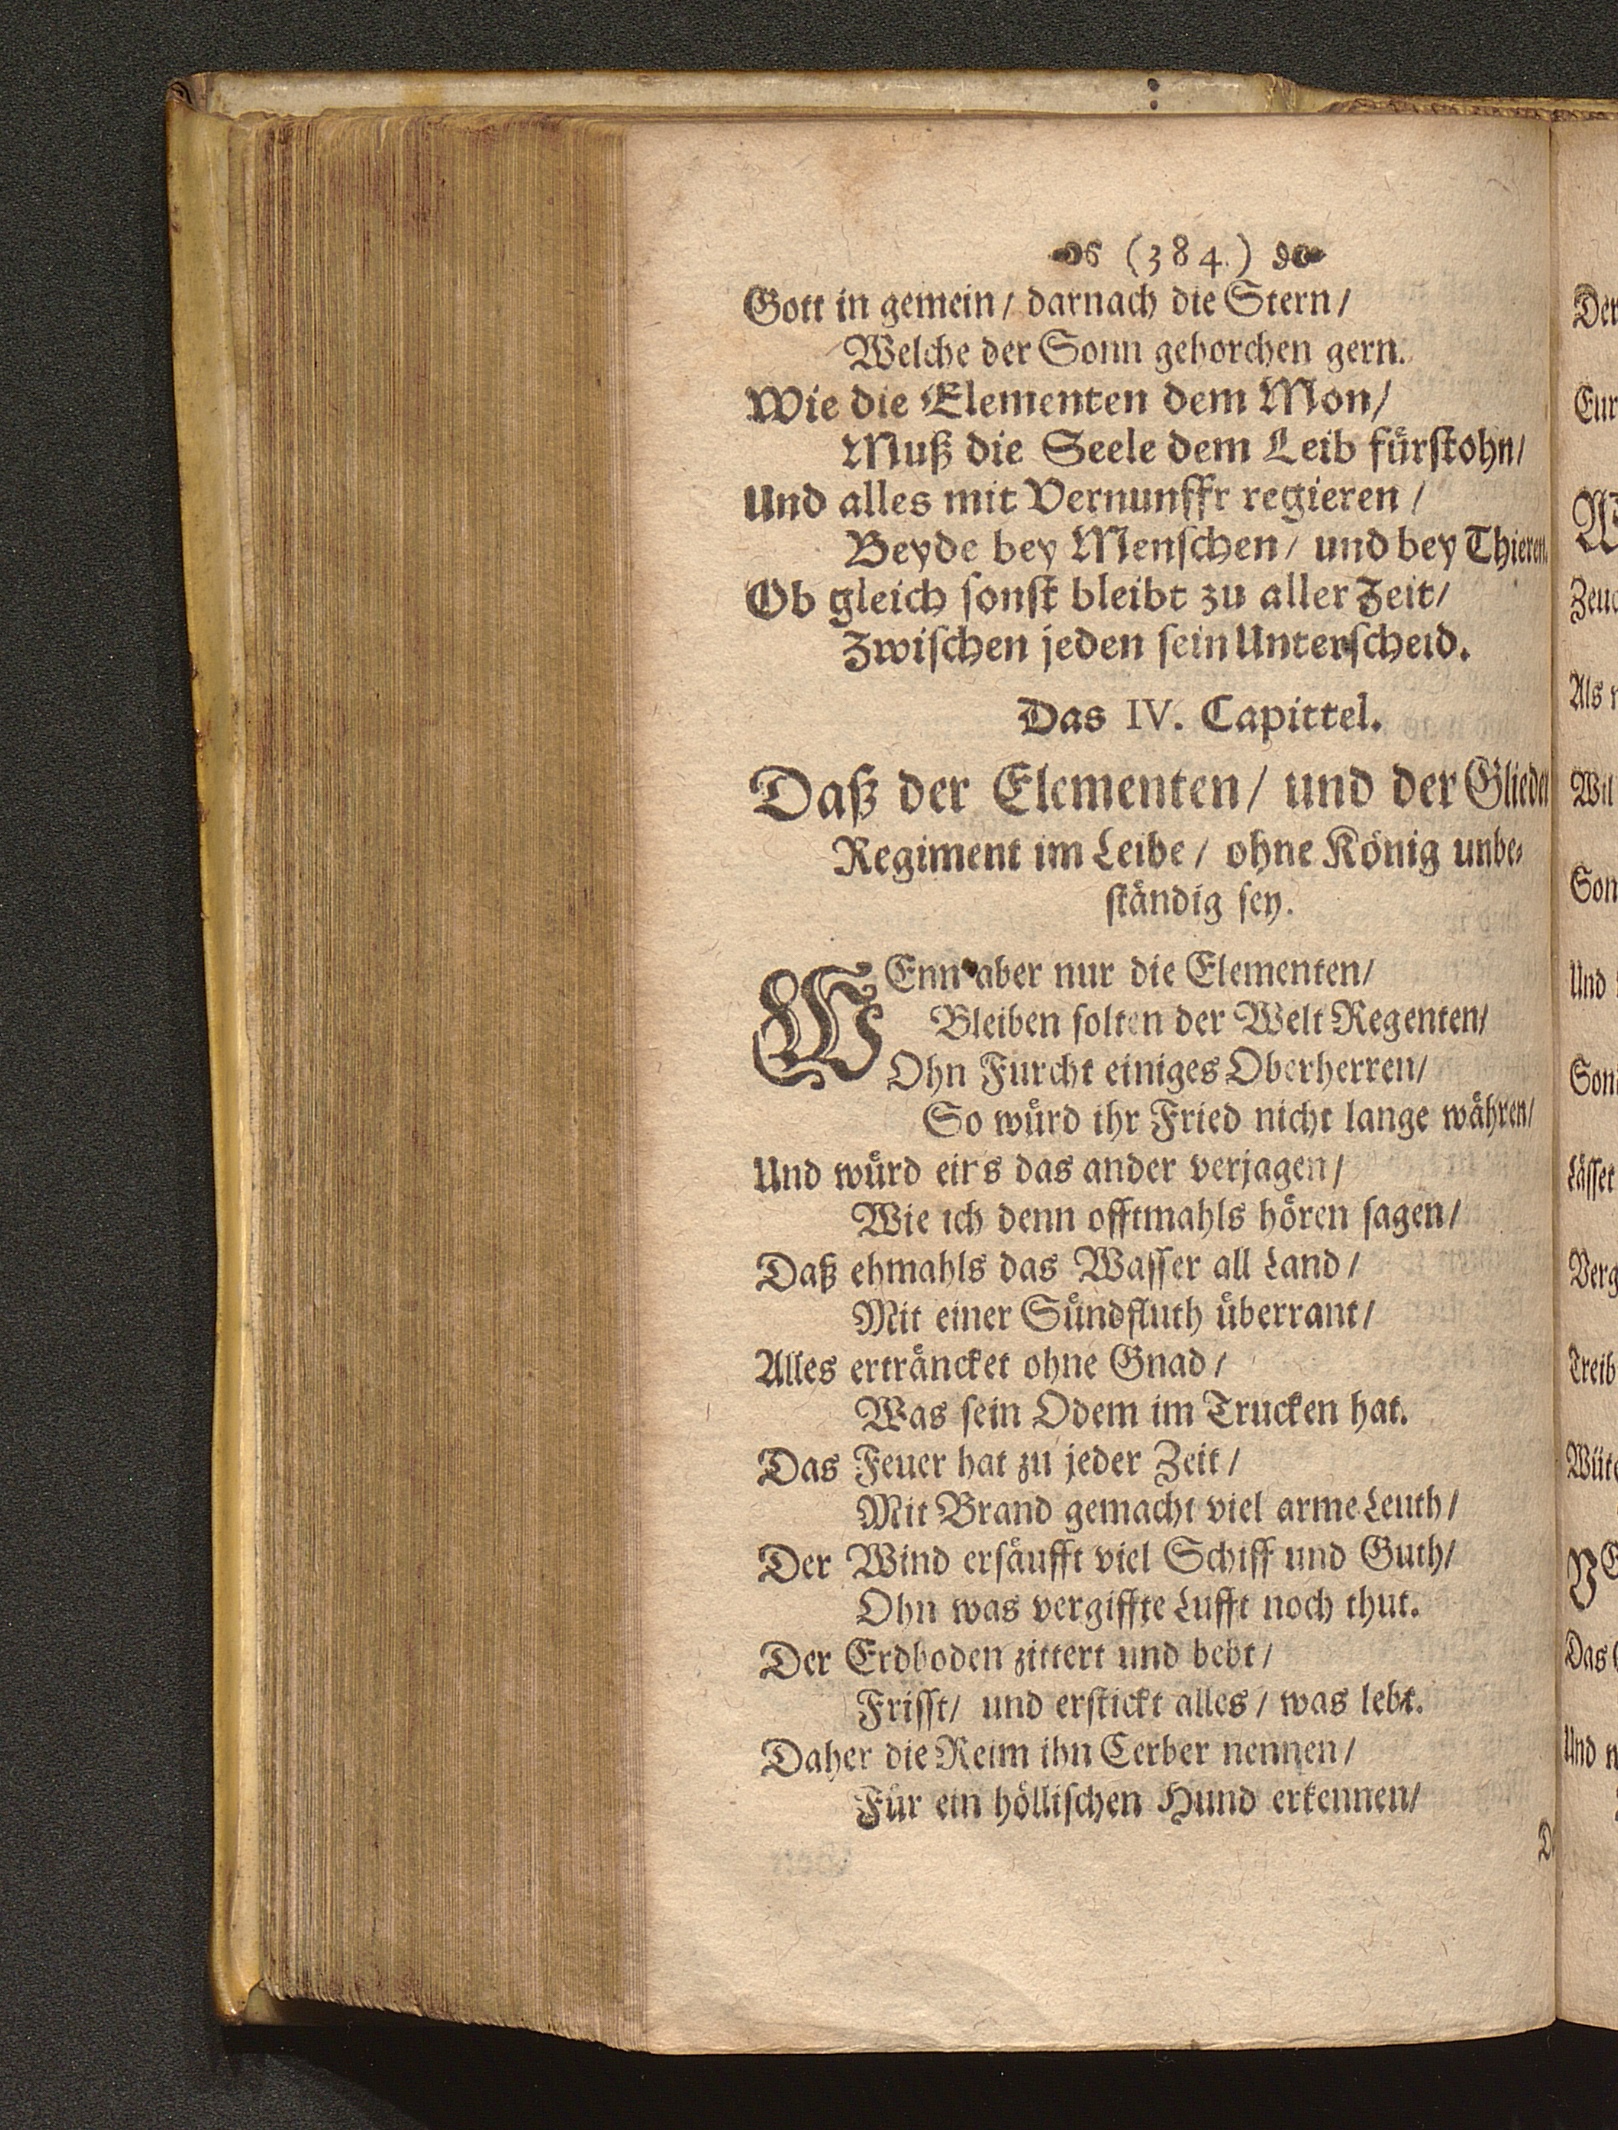 (384.)
Gott in gemein/ darnach die Stern/
Welche der Sonn gehorchen gern.
Wie die Elementen dem Mon/
Muß die Seele dem Leib fürstohn/
Und alles mit Vernunfft regieren/
Beyde bey Menschen/ und bey Thieren.
Ob gleich sonst bleibt zu aller Zeit/
Zwischen jeden sein Unterscheid.
Das IV. Capittel.
Daß der Elementen/ und der Glieder
Regiment im Leibe/ ohne König unbe-
ständig sey.
WEnn aber nur die Elementen/
Bleiben solten der Welt Regenten/
Ohn Furcht einiges Oberherren/
So würd ihr Fried nicht lange währen/
Und würd eins das ander verjagen/
Wie ich denn offtmahls hören sagen/
Daß ehmahls das Wasser all Land/
Mit einer Sündfluth überrant/
Alles erträncket ohne Gnad/
Was sein Odem im Trucken hat.
Das Feuer hat zu jeder Zeit/
Mit Brand gemacht viel arme Leuth/
Der Wind ersäufft viel Schiff und Guth/
Ohn was vergiffte Lufft noch thut.
Der Erdboden zittert und bebt/
Frisst/ und erstickt alles/ was lebt.
Daher die Reim ihn Cerber nennen/
Für ein höllischen Hund erkennen/
Zeuc
Als
Und
Lässet
Verg
Treib
Das
Und